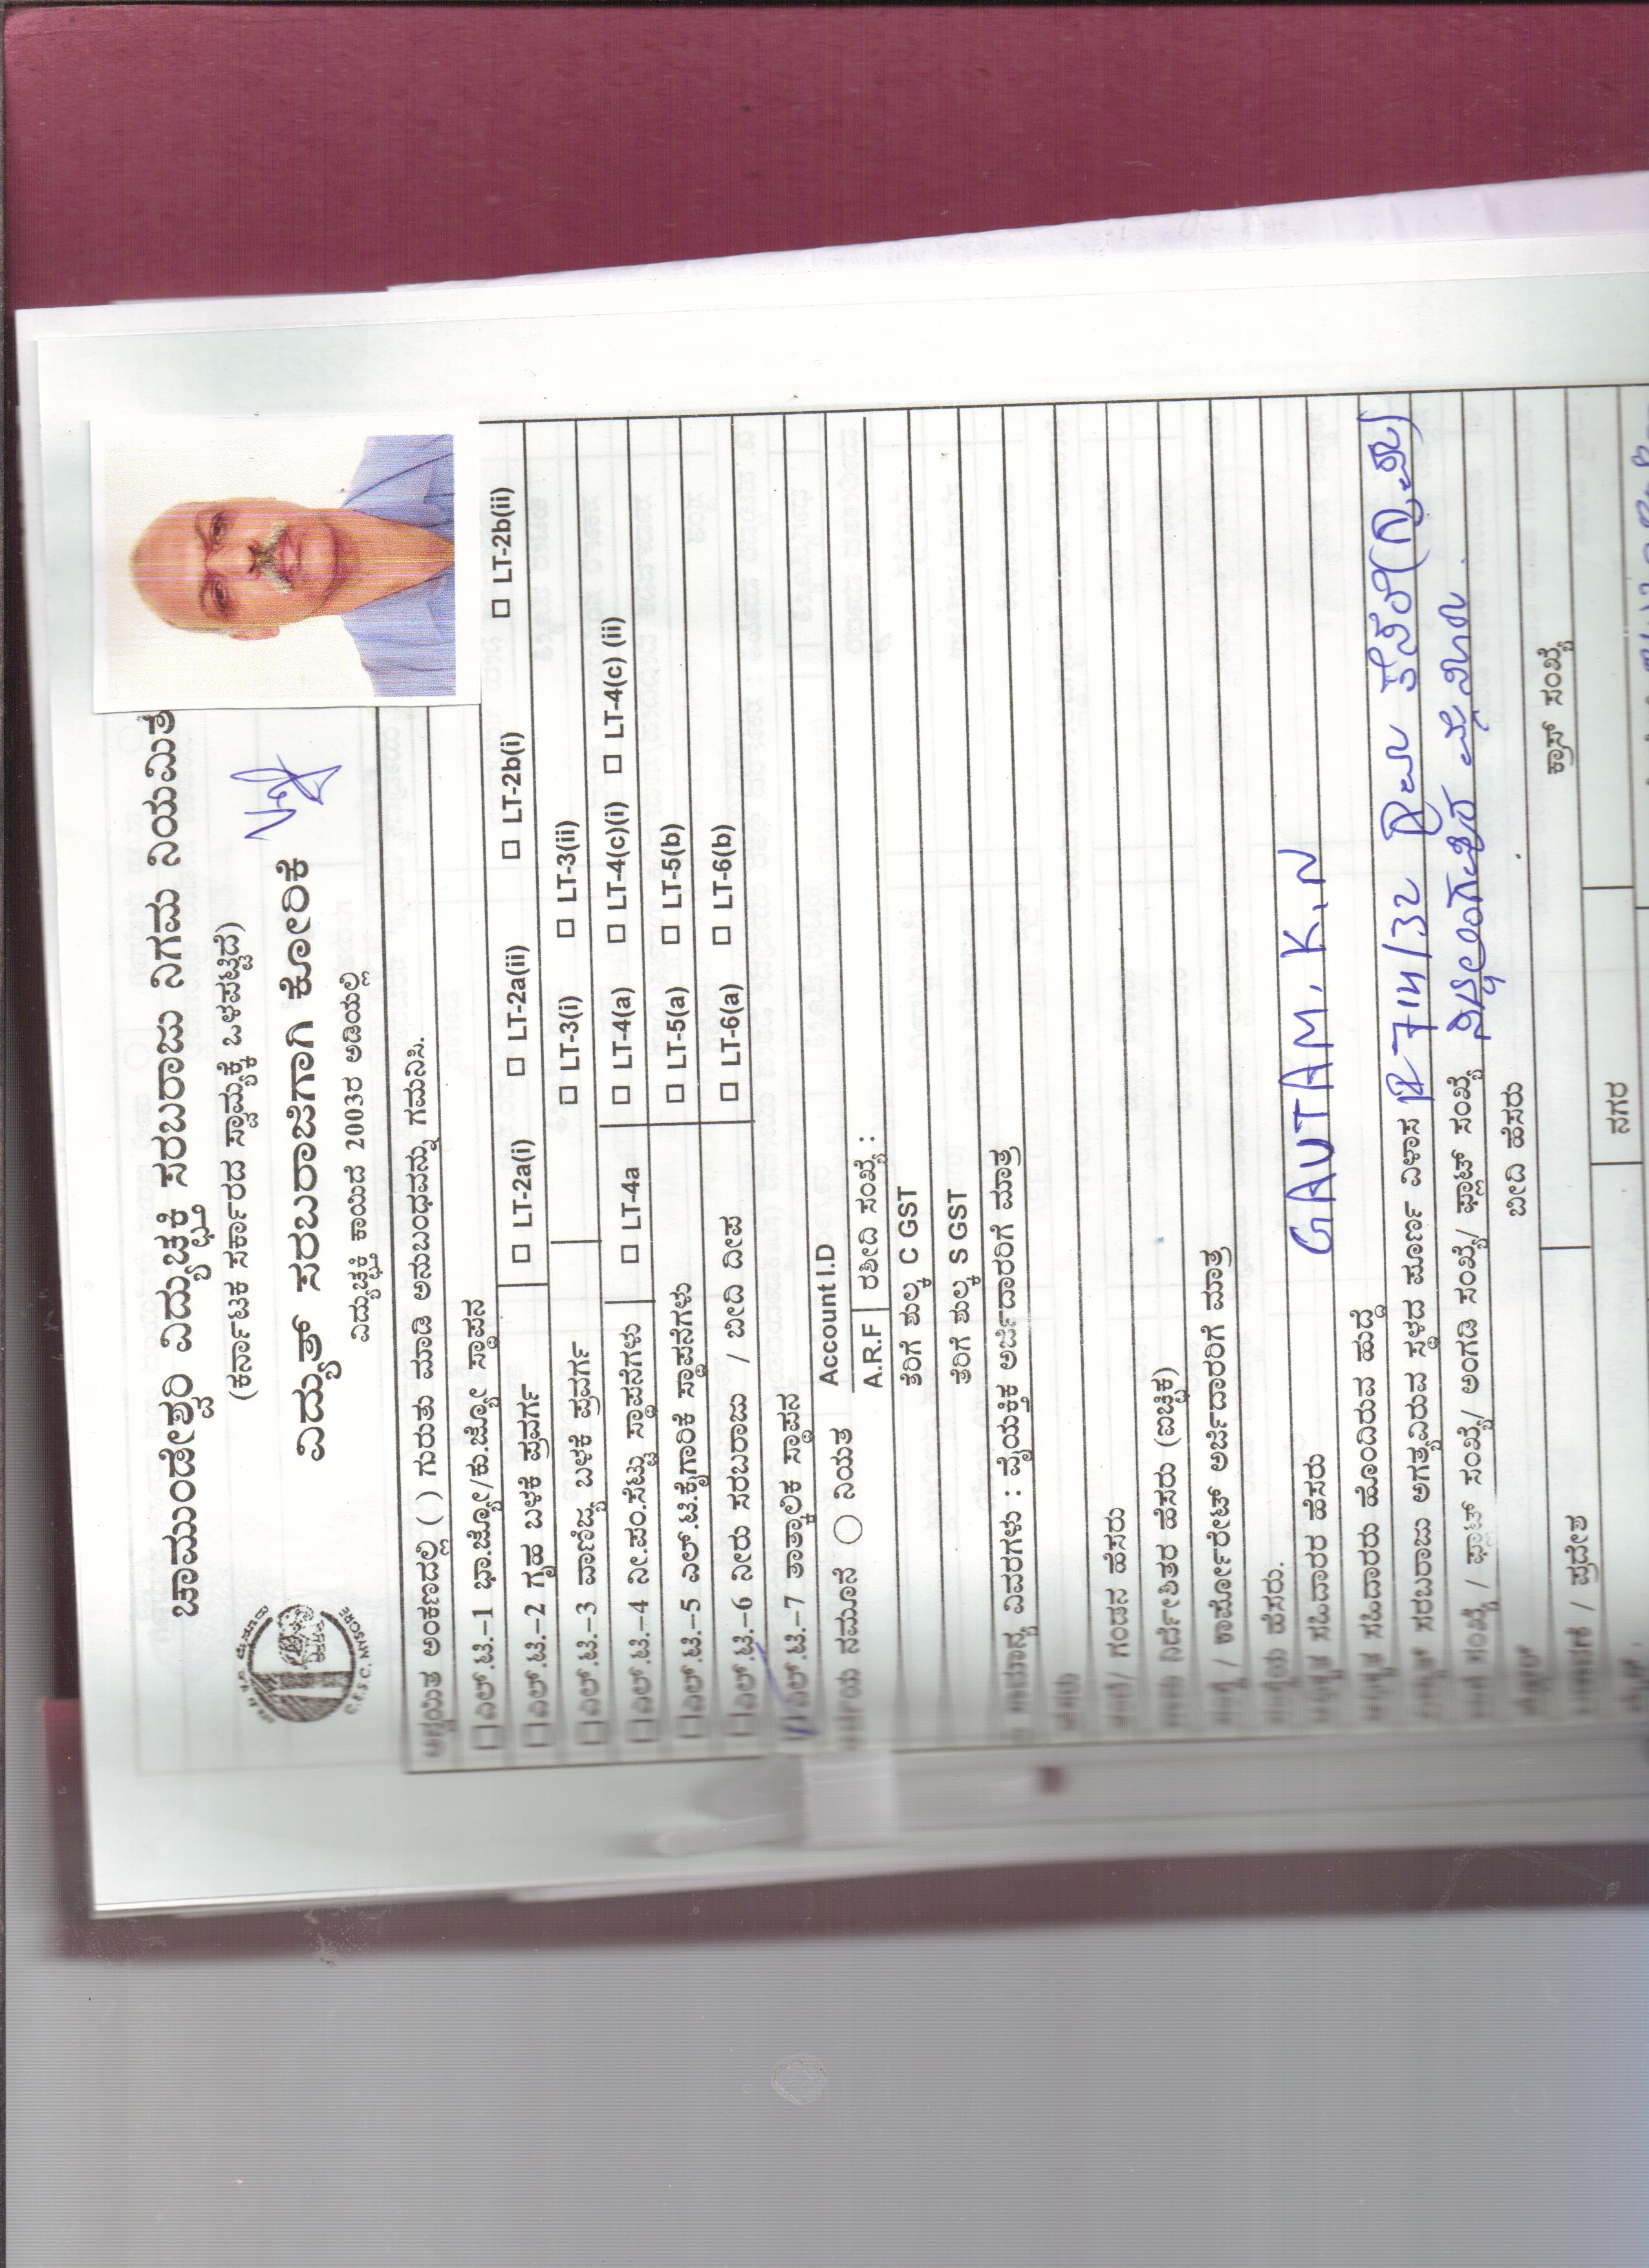 ಚಾಮುಂಡೇಶ್ವರಿ ವಿದ್ಯುಚ್ಛಕ್ತಿ ಸರಬರಾಜು ನಿಗಮ ನಿಯಮಿತ
(ಕರ್ನಾಟಕ ಸರ್ಕಾರದ ಸ್ವಾಮ್ಯಕ್ಕೆ ಒಳಪಟ್ಟಿದೆ)
ವಿದ್ಯುತ್ ಸರಬರಾಜಿಗಾಗಿ ಕೋರಿಕೆ
ವಿದ್ಯುಚ್ಛಕ್ತಿ ಕಾಯಿದೆ 2003ರ ಅಡಿಯಲ್ಲಿ
C.E.S.C. MYSORE
ಅನ್ವಯಿತ ಅಂಕಣದಲ್ಲಿ ( ) ಗುರುತು ಮಾಡಿ ಅನುಬಂಧವನ್ನು ಗಮನಿಸಿ.
ಎಲ್.ಟಿ.–1 ಭಾ.ಜ್ಯೋ/ಕು.ಜ್ಯೋ ಸ್ಥಾಪನ
ಎಲ್.ಟಿ.–2 ಗೃಹ ಬಳಕೆ ಪ್ರವರ್ಗ LT-2a(i) LT-2a(ii) LT-2b(i) LT-2b(ii)
ಎಲ್.ಟಿ.–3 ವಾಣಿಜ್ಯ ಬಳಕೆ ಪ್ರವರ್ಗ LT-3(i) LT-3(ii)
ಎಲ್.ಟಿ.–4 ನೀ.ಪಂ.ಸೆಟ್ಟು ಸ್ಥಾಪನೆಗಳು LT-4a LT-4(a) LT-4(c)(i) LT-4(c) (ii)
ಎಲ್.ಟಿ.–5 ಎಲ್.ಟಿ.ಕೈಗಾರಿಕೆ ಸ್ಥಾಪನೆಗಳು LT-5(a) LT-5(b)
ಎಲ್.ಟಿ.–6 ನೀರು ಸರಬರಾಜು / ಬೀದಿ ದೀಪ LT-6(a) LT-6(b)
ಎಲ್.ಟಿ.–7 ತಾತ್ಕಾಲಿಕ ಸ್ಥಾಪನ
ನಮೂನೆ ನಿಯತ Account I.D
A.R.F ರಶೀದಿ ಸಂಖ್ಯೆ :
ತೆರಿಗೆ ಶುಲ್ಕ C GST
ತೆರಿಗೆ ಶುಲ್ಕ S GST
ವಿವರಗಳು : ವೈಯಕ್ತಿಕ ಅರ್ಜಿದಾರರಿಗೆ ಮಾತ್ರ
ಹೆಸರು
ತಂದೆ/ ಗಂಡನ ಹೆಸರು
ನಿರ್ದೇಶಿತರ ಹೆಸರು (ಐಚ್ಛಿಕ)
ಸಂಸ್ಥೆ / ಕಾರ್ಪೋರೇಟ್ ಅರ್ಜಿದಾರರಿಗೆ ಮಾತ್ರ
ಸಂಸ್ಥೆಯ ಹೆಸರು.
ಅಧಿಕೃತ ಸಹಿದಾರರ ಹೆಸರು GAUTAM. K.N
ಅಧಿಕೃತ ಸಹಿದಾರರು ಹೊಂದಿರುವ ಹುದ್ದೆ
ವಿದ್ಯುತ್ ಸರಬರಾಜು ಅಗತ್ಯವಿರುವ ಸ್ಥಳದ ಪೂರ್ಣ ವಿಳಾಸ
ಮನೆ ಸಂಖ್ಯೆ / ಫ್ಲಾಟ್ ಸಂಖ್ಯೆ/ ಅಂಗಡಿ ಸಂಖ್ಯೆ/ ಪ್ಲಾಟ್ ಸಂಖ್ಯೆ
ಬೀದಿ ಹೆಸರು
ಕ್ರಾಸ್ ಸಂಖ್ಯೆ
ಬಡಾವಣೆ / ಪ್ರದೇಶ
ನಗರ